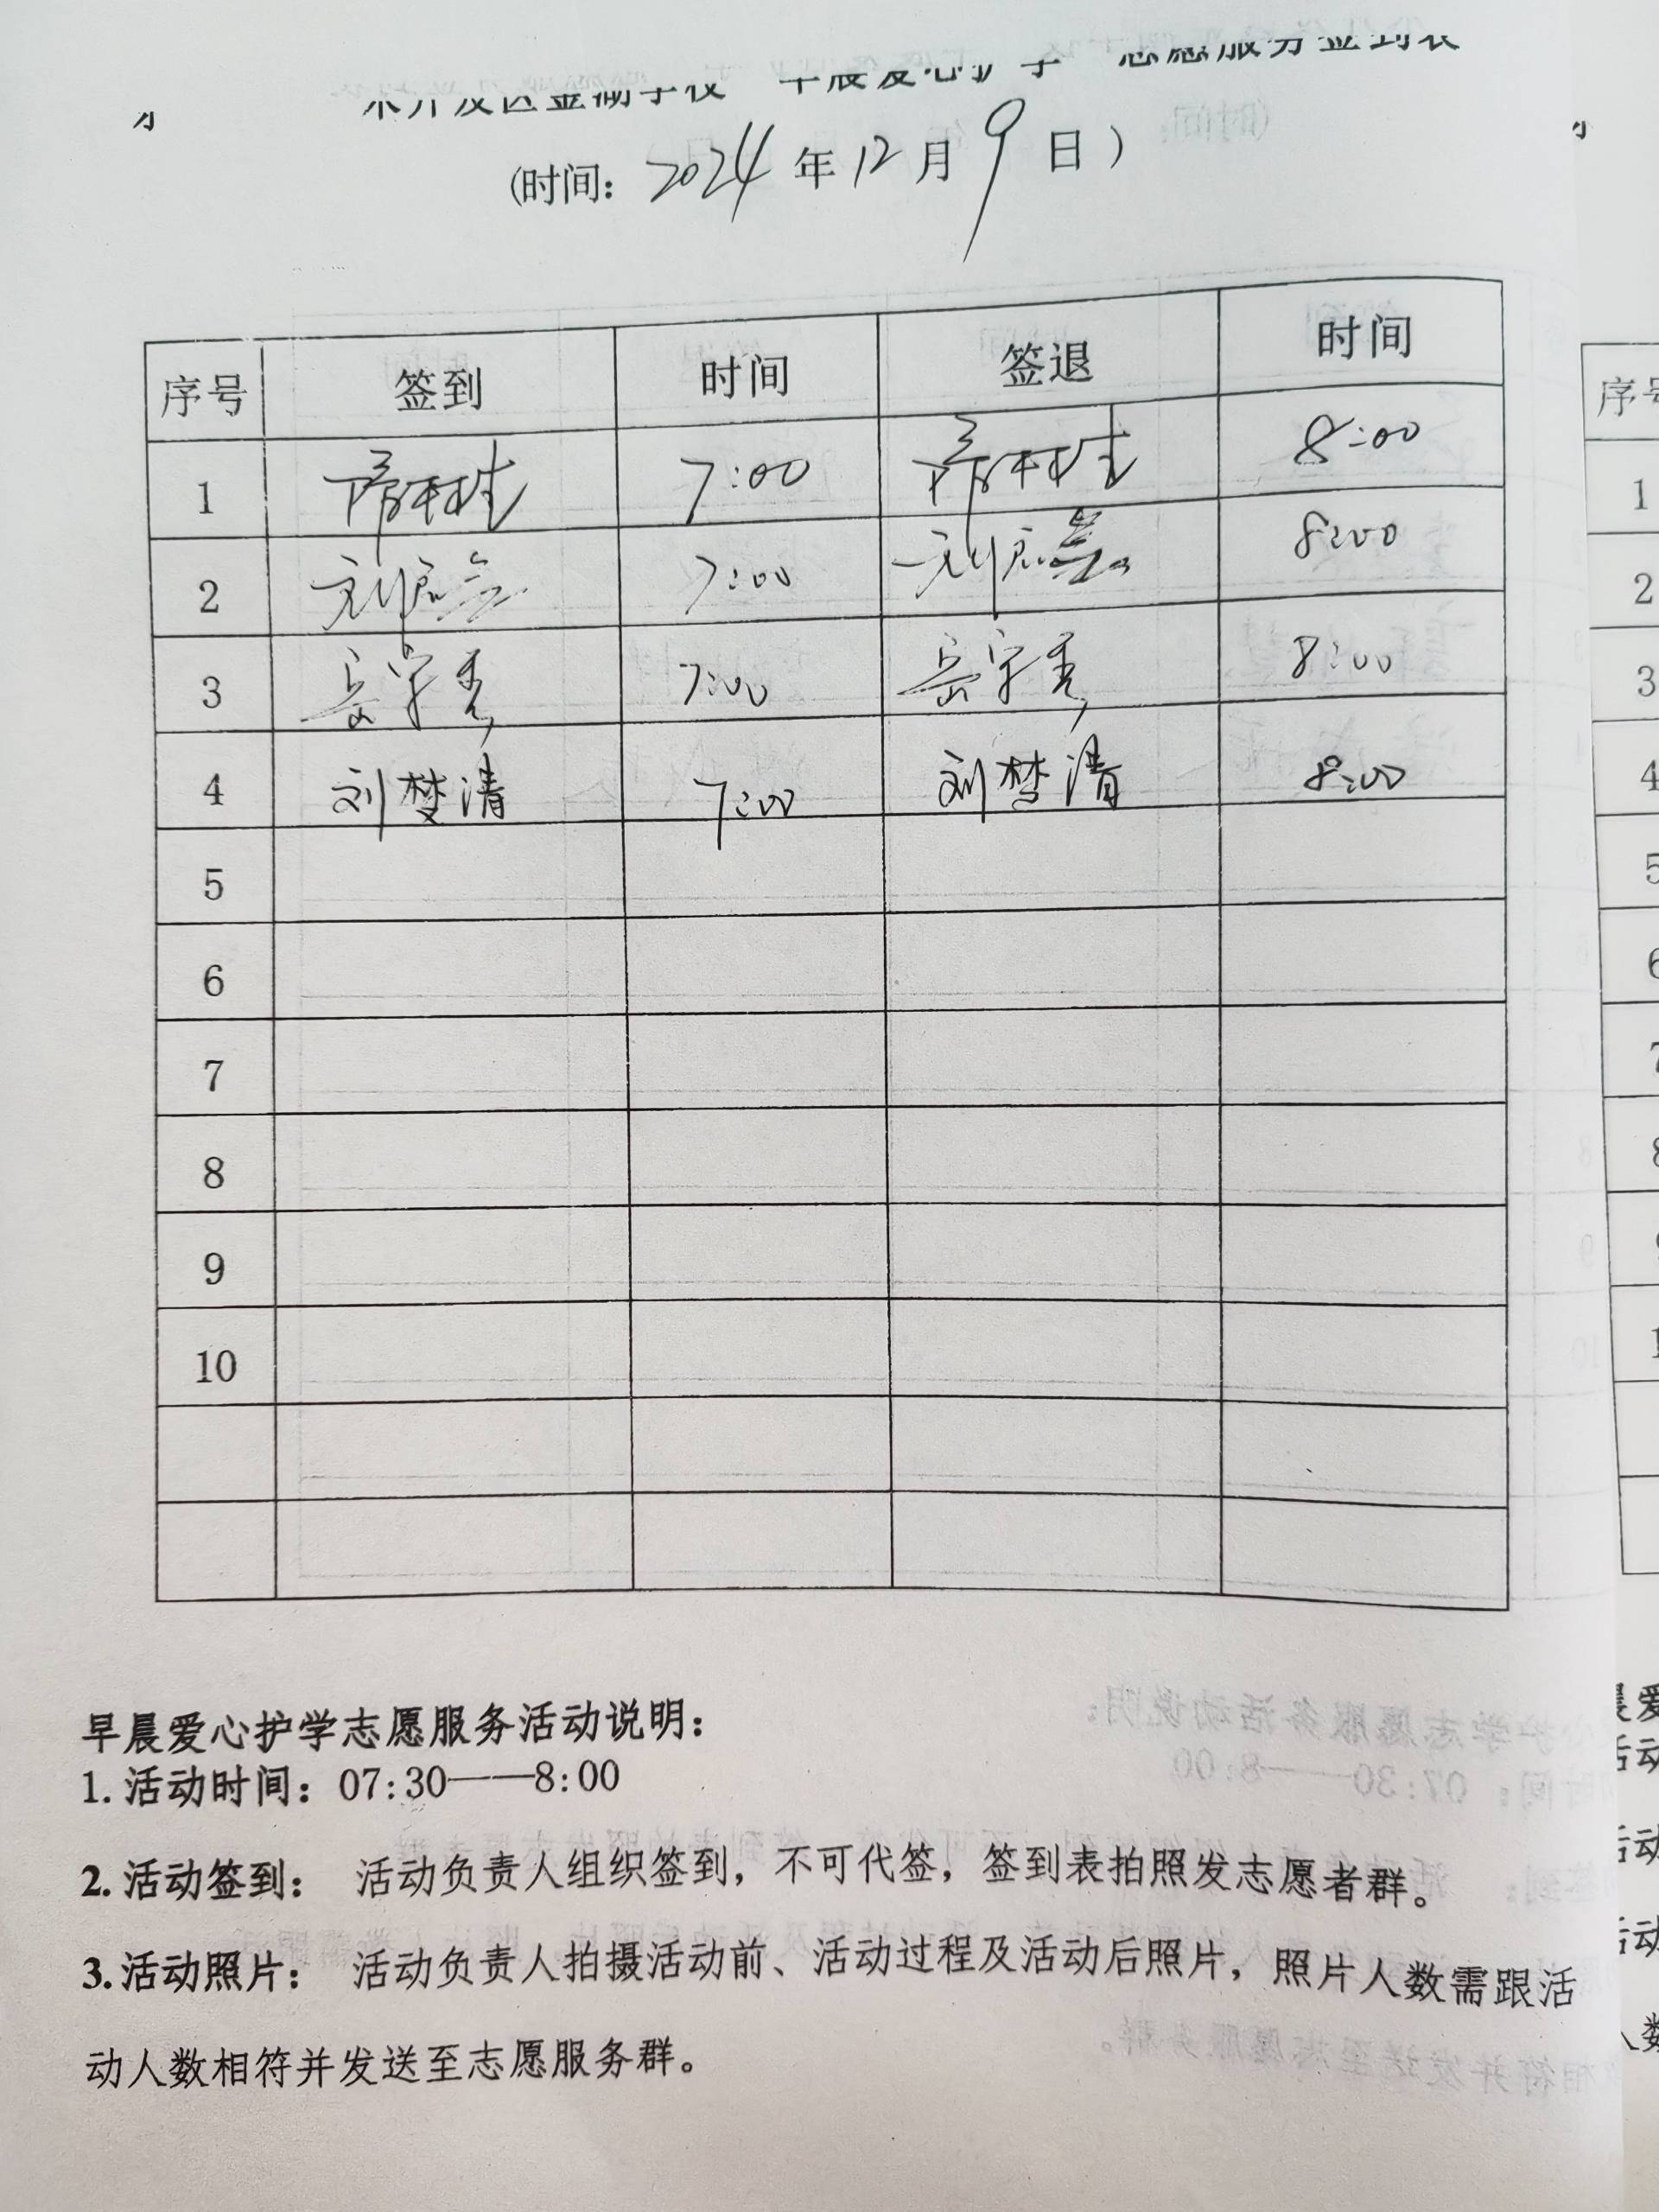 开发区金湖学校“早晨爱心护学”志愿服务签到表
(时间: 2024 年 12 月 9 日)
序号 签到 时间 签退 时间
1 7:00 8:00
2 7:00 8:00
3 7:00 8:00
4 刘梦清 7:00 刘梦清 8:00
5
6
7
8
9
10
早晨爱心护学志愿服务活动说明:
1. 活动时间: 07:30——8:00
2. 活动签到: 活动负责人组织签到,不可代签,签到表拍照发志愿者群。
3. 活动照片: 活动负责人拍摄活动前、活动过程及活动后照片,照片人数需跟活
动人数相符并发送至志愿服务群。
序号
1
2
3
4
5
6
7
8